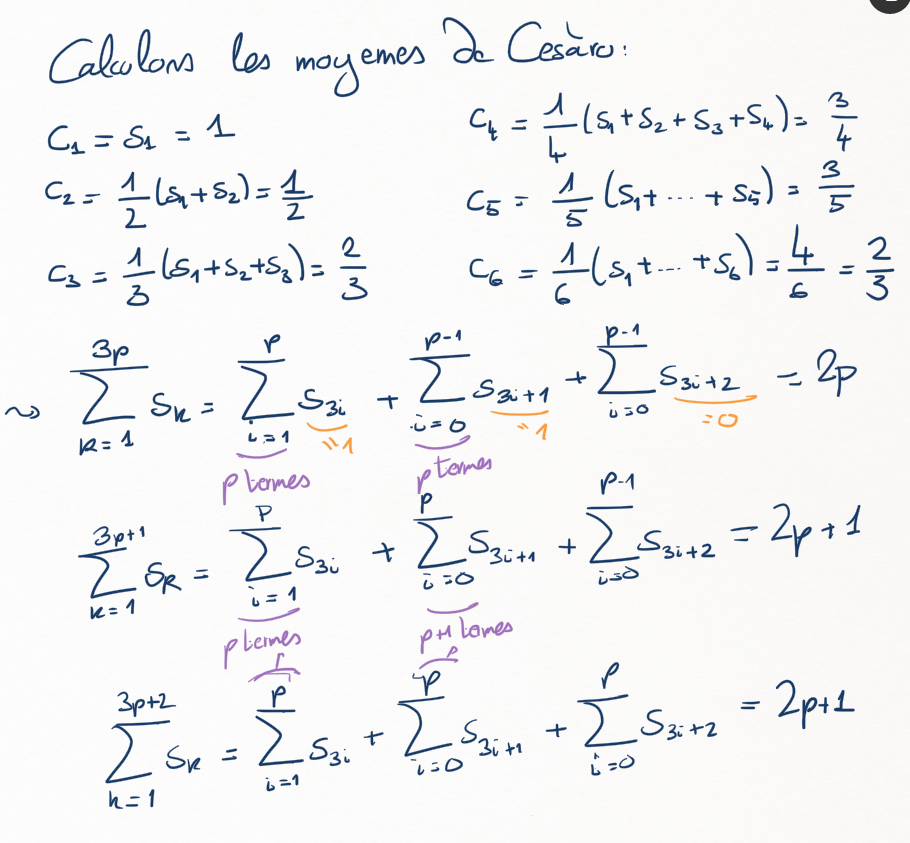 Calculons les moyennes de Cesàro:
C₁ = S₁ = 1
C₂ = 1/2 (S₁+S₂) = 1/2
C₃ = 1/3 (S₁+S₂+S₃) = 2/3
C₄ = 1/4 (S₁+S₂+S₃+S₄) = 3/4
C₅ = 1/5 (S₁+ ... + S₅) = 3/5
C₆ = 1/6 (S₁+ ... +S₆) = 4/6 = 2/3
⇝ ∑_{k=1}^{3p} S_k = ∑_{i=1}^{p} S_{3i} + ∑_{i=0}^{p-1} S_{3i+1} + ∑_{i=0}^{p-1} S_{3i+2} = 2p
=1 =1 =0
p termes p termes
∑_{k=1}^{3p+1} S_k = ∑_{i=1}^{p} S_{3i} + ∑_{i=0}^{p} S_{3i+1} + ∑_{i=0}^{p-1} S_{3i+2} = 2p+1
p termes p+1 termes
p p
∑_{k=1}^{3p+2} S_k = ∑_{i=1}^{p} S_{3i} + ∑_{i=0}^{p} S_{3i+1} + ∑_{i=0}^{p} S_{3i+2} = 2p+1